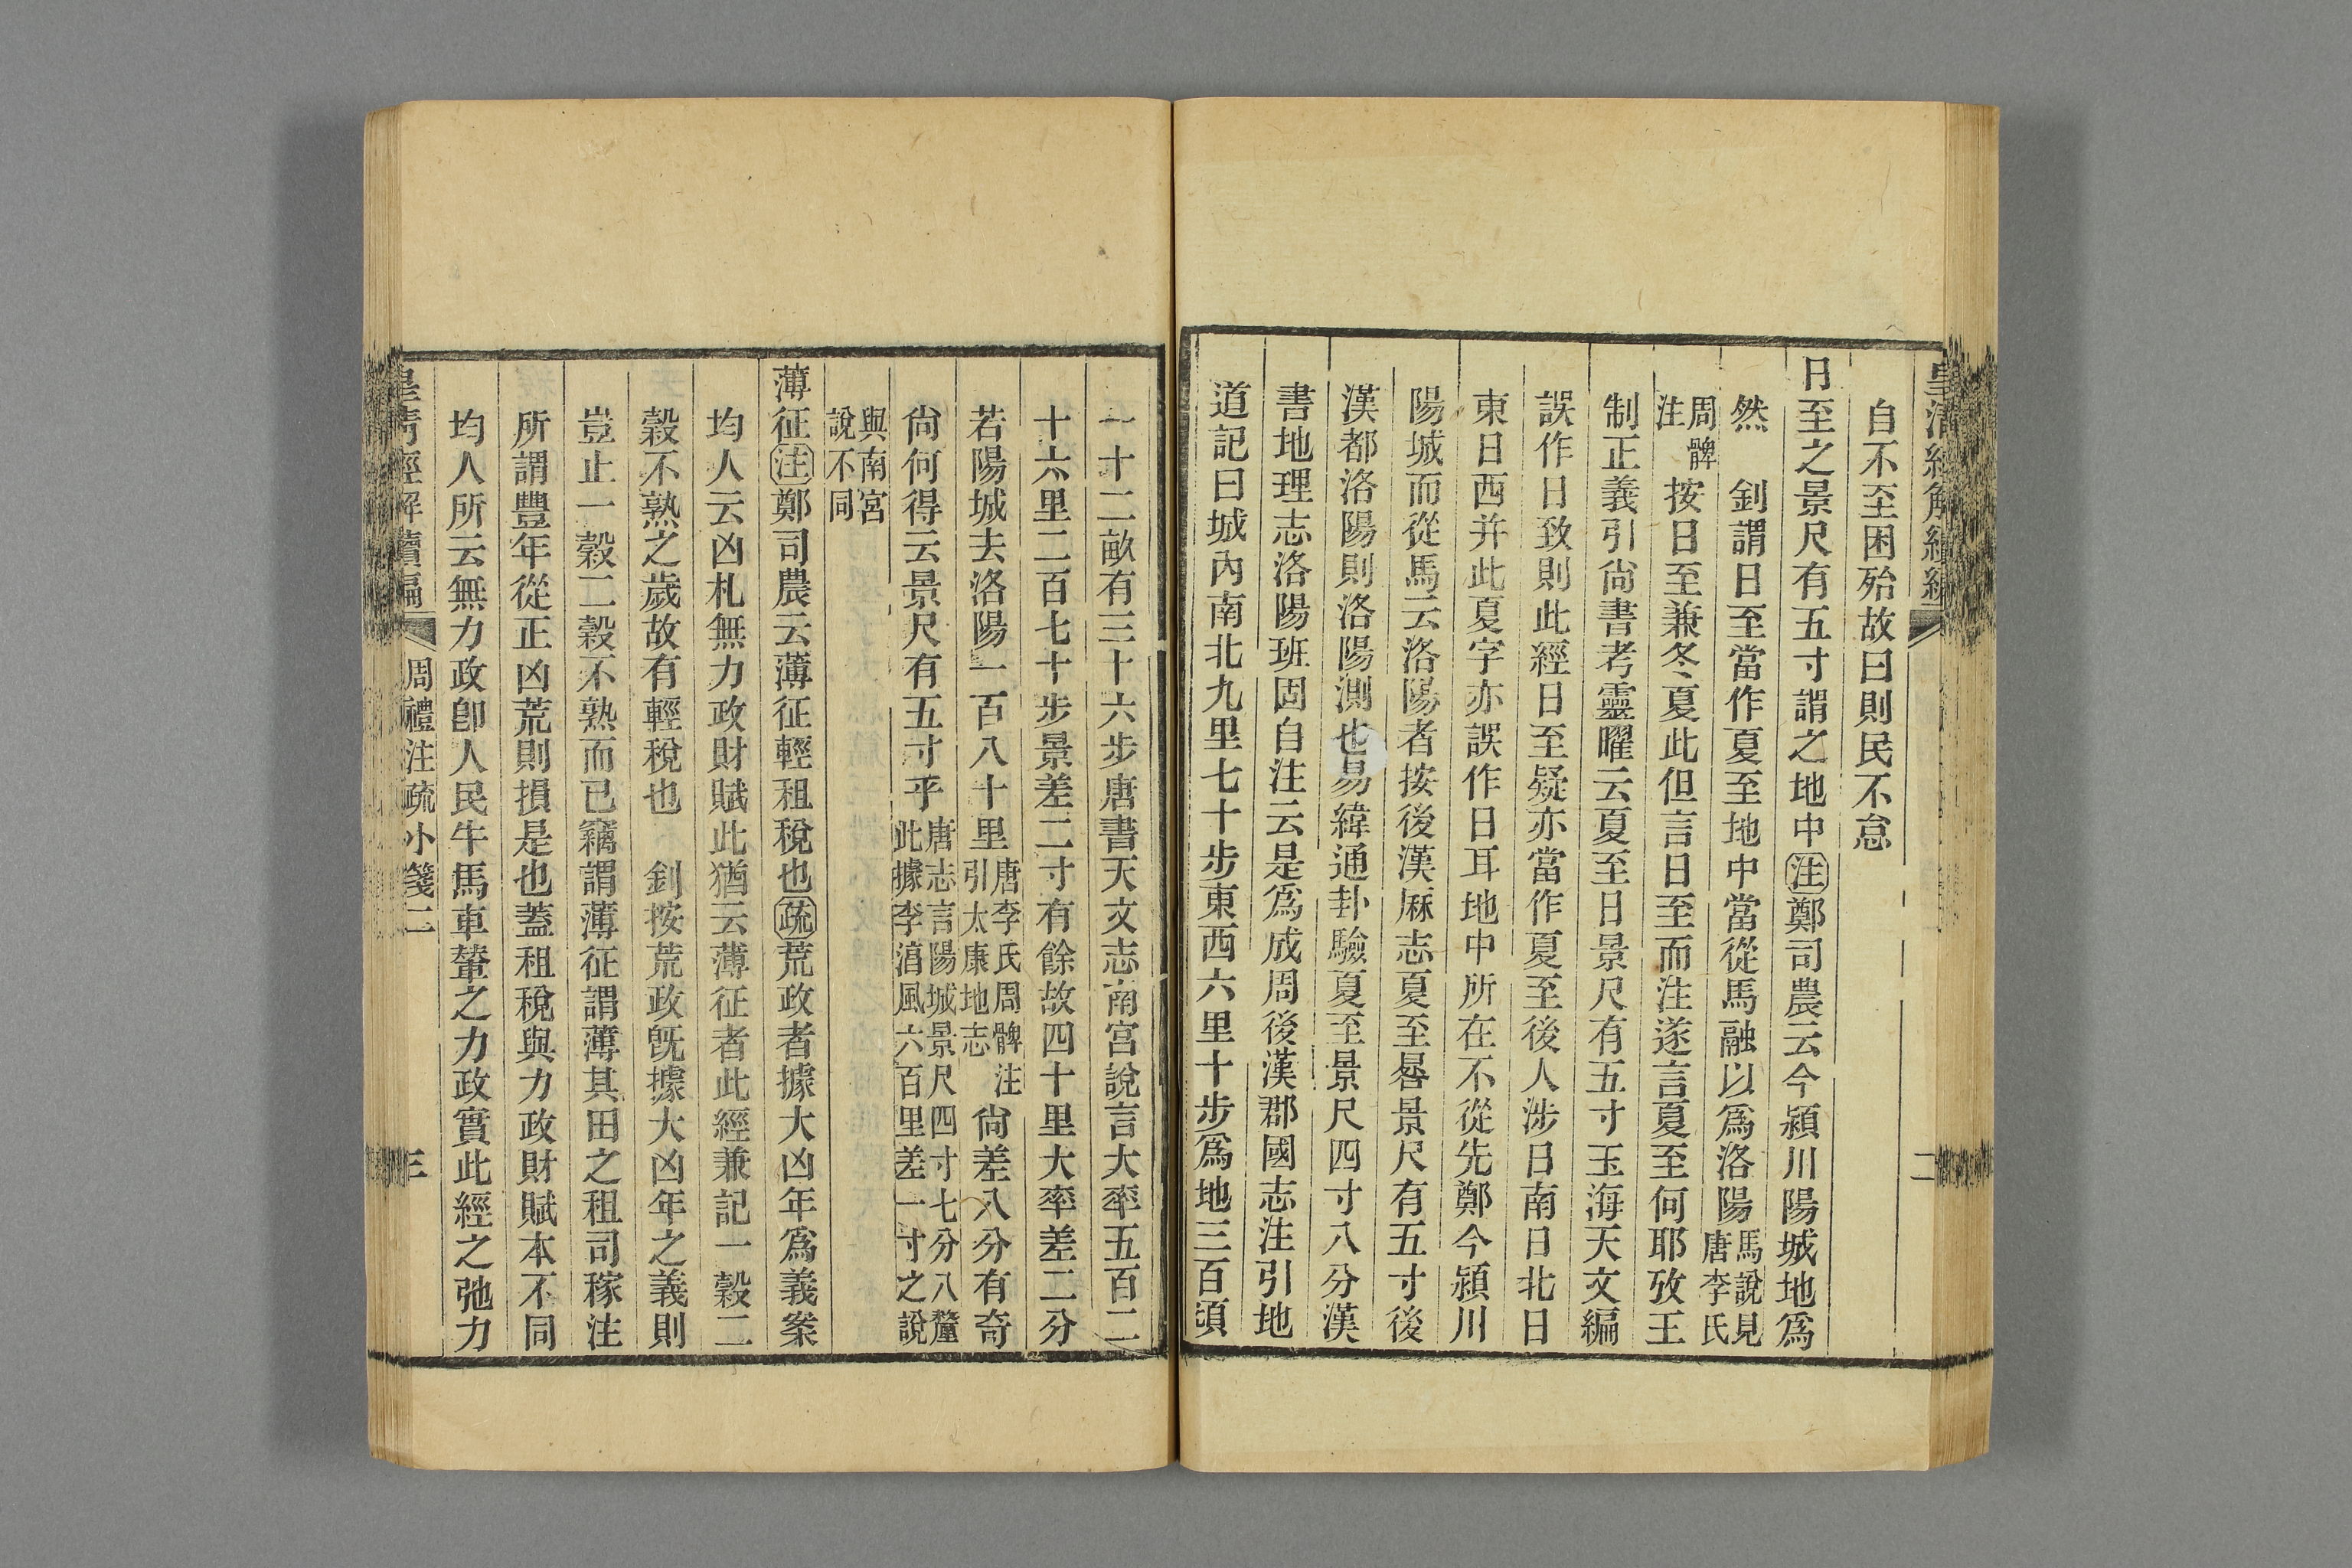 自不至困殆故曰則民不怠
日至之景尺有五寸謂之地中注鄭司農云今潁川陽城地爲
然　釗謂日至當作夏至地中當從馬融以爲洛陽馬說見唐李氏
周髀注　按日至兼冬夏此但言日至而注遂言夏至何耶攷王
制正義引尙書考靈曜云夏至日景尺有五寸玉海天文編
誤作日致則此經日至疑亦當作夏至後人涉日南日北日
東日西并此夏字亦誤作日耳地中所在不從先鄭今潁川
陽城而從馬云洛陽者按後漢厤志夏至晷景尺有五寸後
漢都洛陽則洛陽測也易緯通卦驗夏至景尺四寸八分漢
書地理志洛陽班固自注云是爲成周後漢郡國志注引地
道記曰城內南北九里七十步東西六里十步爲地三百頃
一十二畝有三十六步唐書天文志南宮說言大率五百二
十六里二百七十步景差二寸有餘故四十里大率差二分
若陽城去洛陽一百八十里唐李氏周髀注引太康地志尙差八分有奇
尙何得云景尺有五寸乎唐志言陽城景尺四寸七分八釐此據李淳風六百里差一寸之說
與南宮說不同
薄征注鄭司農云薄征輕租稅也疏荒政者據大凶年爲義案
均人云凶札無力政財賦此猶云薄征者此經兼記一穀二
穀不熟之歲故有輕稅也　釗按荒政旣據大凶年之義則
豈止一穀二穀不熟而已竊謂薄征謂薄其田之租司稼注
所謂豐年從正凶荒則損是也蓋租稅與力政財賦本不同
均人所云無力政卽人民牛馬車輦之力政實此經之弛力
皇淸經解續編　周禮注疏小箋二　三